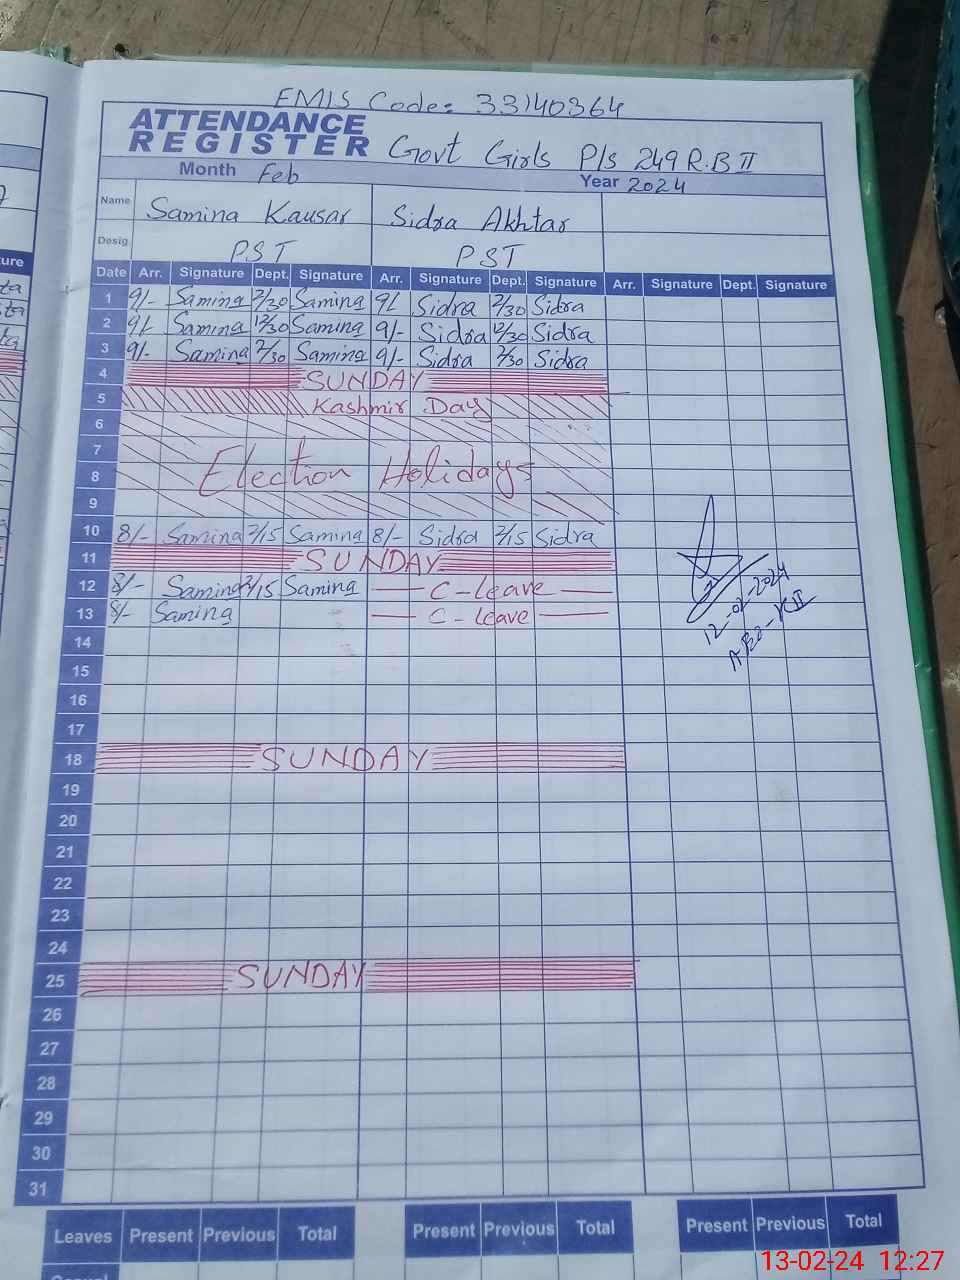 EMIS Code: 33140364
ATTENDANCE
REGISTER Govt Girls P/s 249 R.B II
Month Feb Year 2024
Name Samina Kausar Sidra Akhtar
Desig. PST PST
Date Arr. Signature Dept. Signature Arr. Signature Dept. Signature Arr. Signature Dept. Signature
1 9/- Samina Samina 9/- Sidra 2/30 Sidra
2 9/- Samina 12/30 Samina 9/- Sidra 12/30 Sidra
3 9/- Samina 2/30 Samina 9/- Sidra 2/30 Sidra
4 SUNDAY
5 Kashmir Day
6
7
8 Election Holidays
9
10 8/- Samina 2/15 Samina 8/- Sidra 2/15 Sidra
11 SUNDAY
12 8/- Samina 2/15 Samina C-leave
13 8/- Samina C-leave
12-02-2024
14
15
16
17
18 SUNDAY
19
20
21
22
23
24
25 SUNDAY
26
27
28
29
30
31
Leaves Present Previous Total Present Previous Total Present Previous Total
13-02-24 12:27